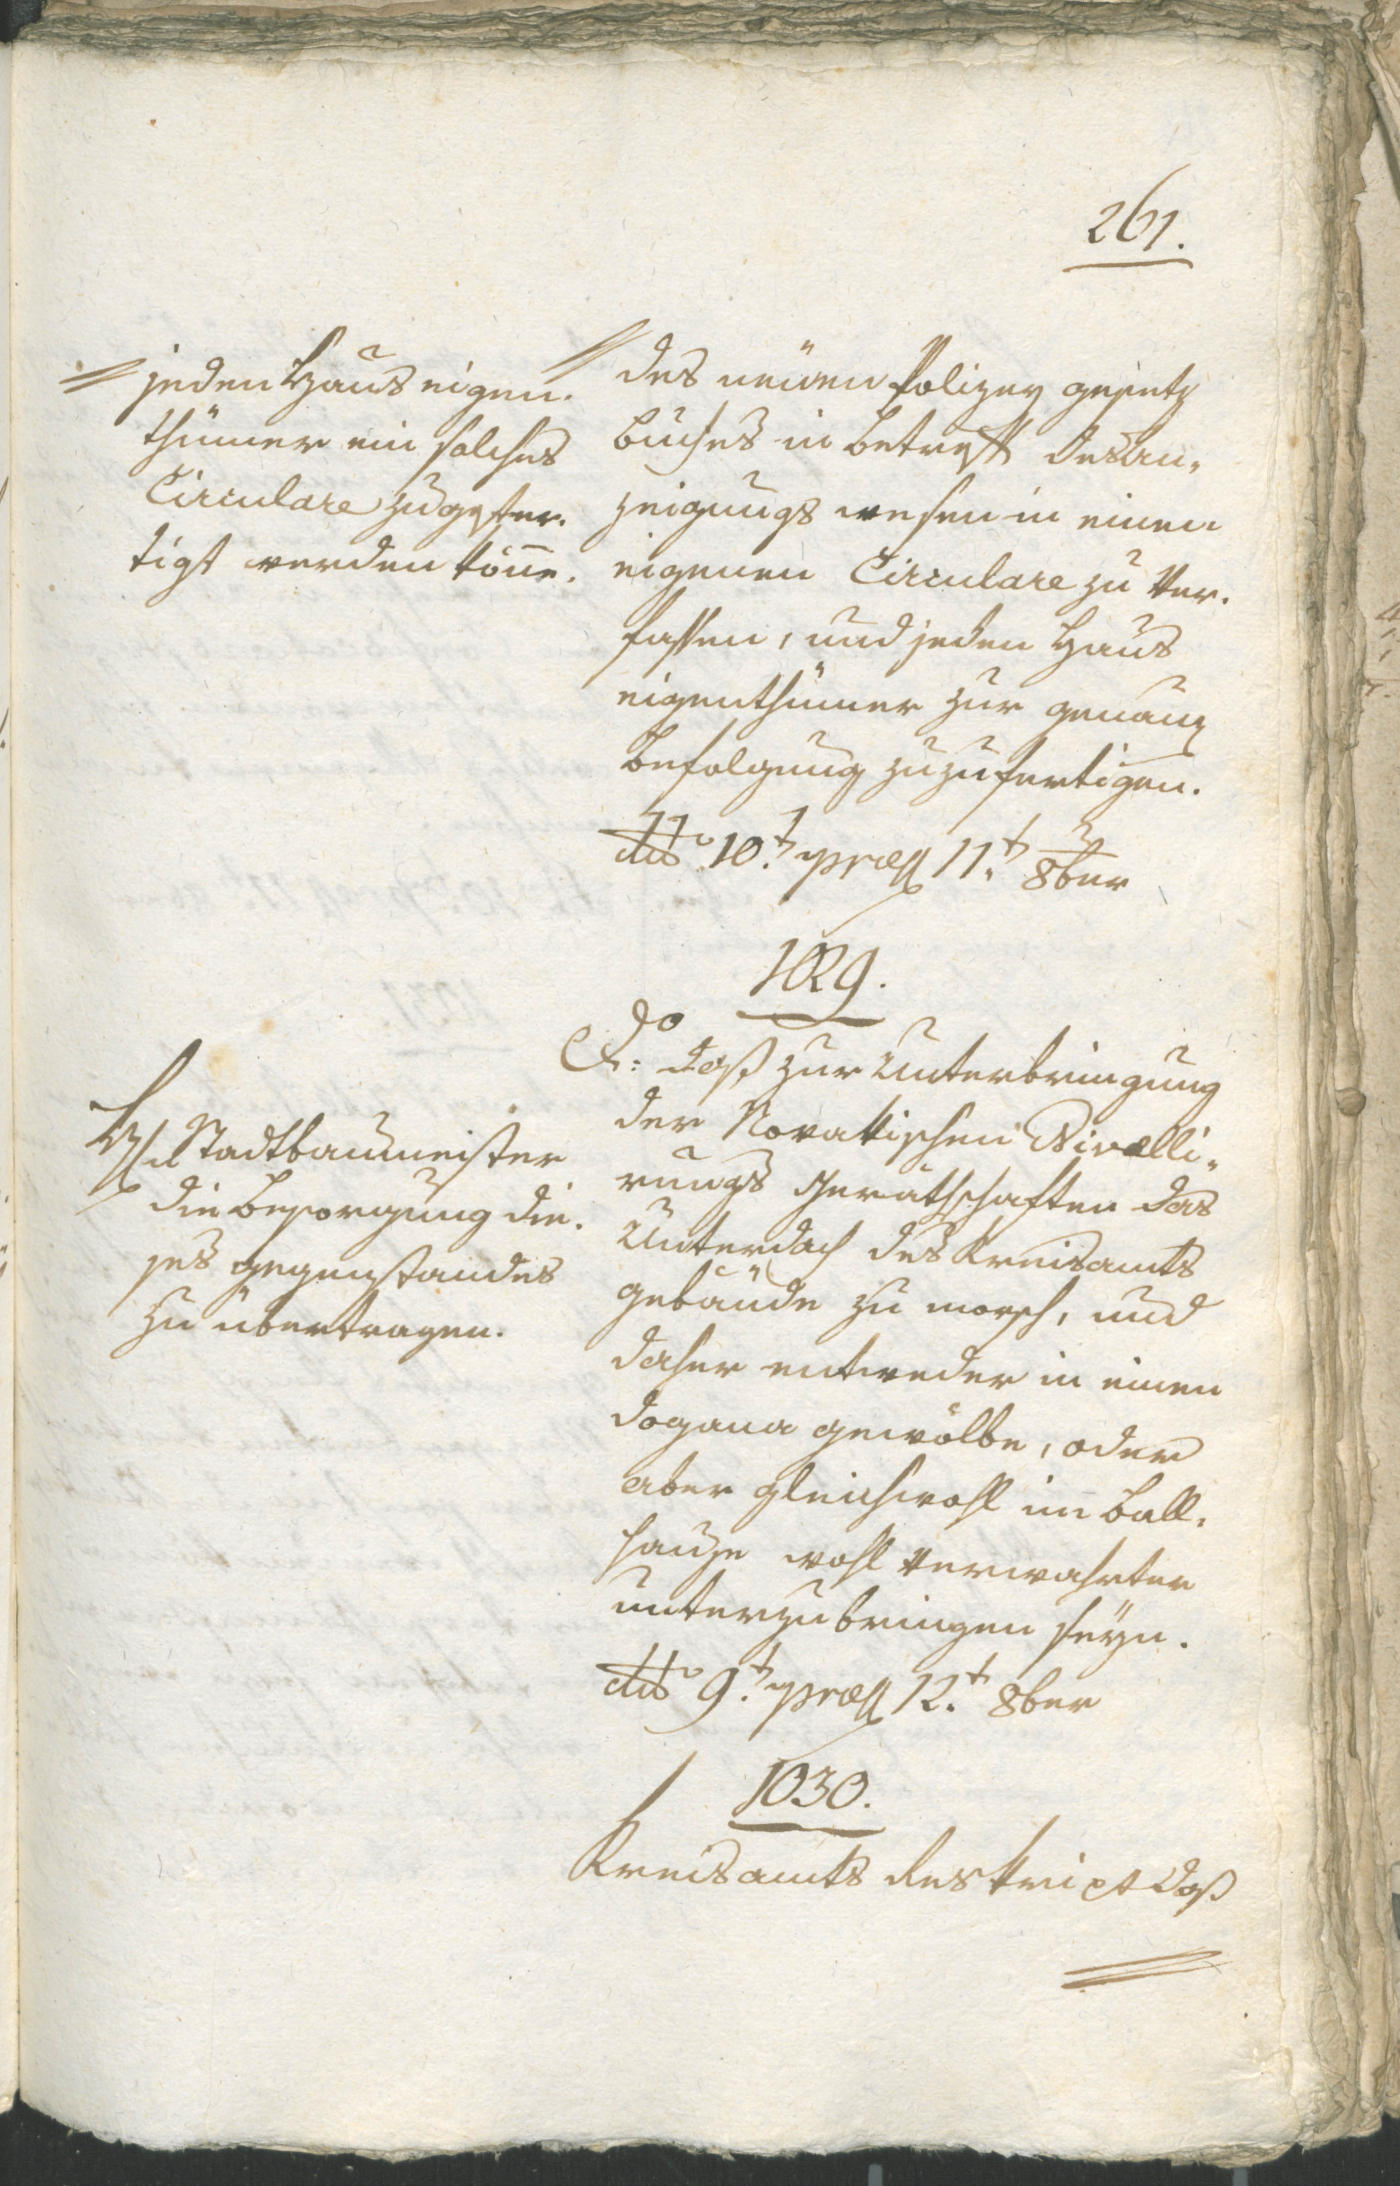 261.
jeden Hauseigen-
thümer ein solches
Circulare zugefer-
tigt werden könne.
des neüen Polizey gesetz
buches in betreff des An-
zeigungs wesen in einen
eigenen Circulare zu ver-
fassen, und jeden Haus
eigenthümer zur genauen
befolgung zuzufertigen.
dto 10.t præs 11.t 8ber
1029.
do
daß zur Unterbringung
der Novakischen Nivelli-
rungs Geräthschaften das
Unterdach des Kreisamts
gebäude zu morsch, und
daher entweder in einen
Dogana gewölbe, oder
aber gleichwohl im Ball-
hause wohl verwahrter
unterzubringen seyn.
dto 9.t præs 12.t 8ber
H. Stadtbaumeister
die besorgung die-
ses gegenstandes
zu übertragen.
1030.
Kreisamts Reskript daß